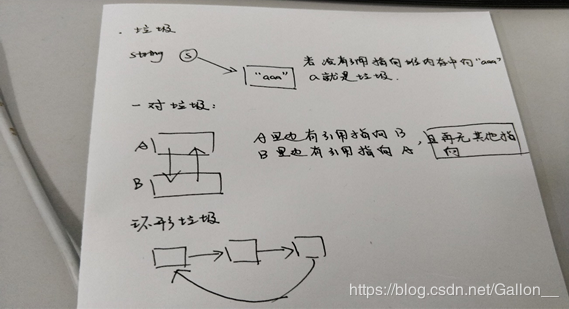 . 垃圾
string s
"aaa"
若没有引用指向堆内存中的"aaa"
a就是垃圾.
一对垃圾:
A
B
A里也有引用指向B
B里也有引用指向A, 且再无其他指向
环形垃圾
https://blog.csdn.net/Gallon__